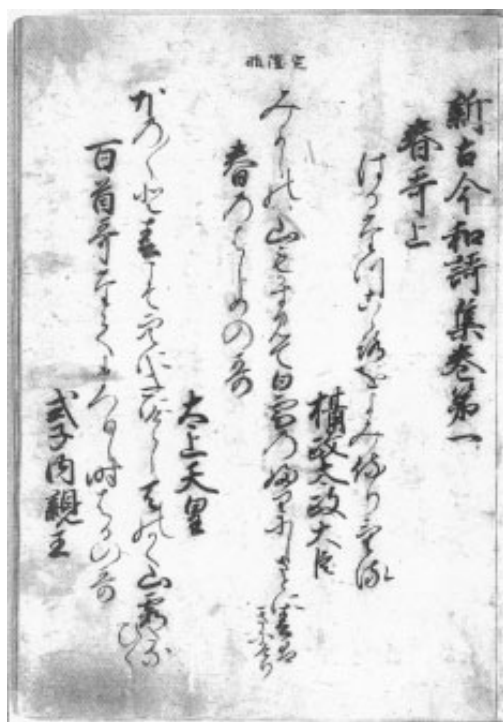 定隆雅
新古今和謌集巻第一
春哥上
はるたつ心をよみ侍りける
摂政太政大臣
みよしのは山もかすみて白雪のふりにしさとに春は
きにけり
春のはしめの哥
太上天皇
ほの〱と春こそ空にきにけらしあまのかく山霞たな
ひく
百首哥たてまつりし時はるの哥
式子内親王